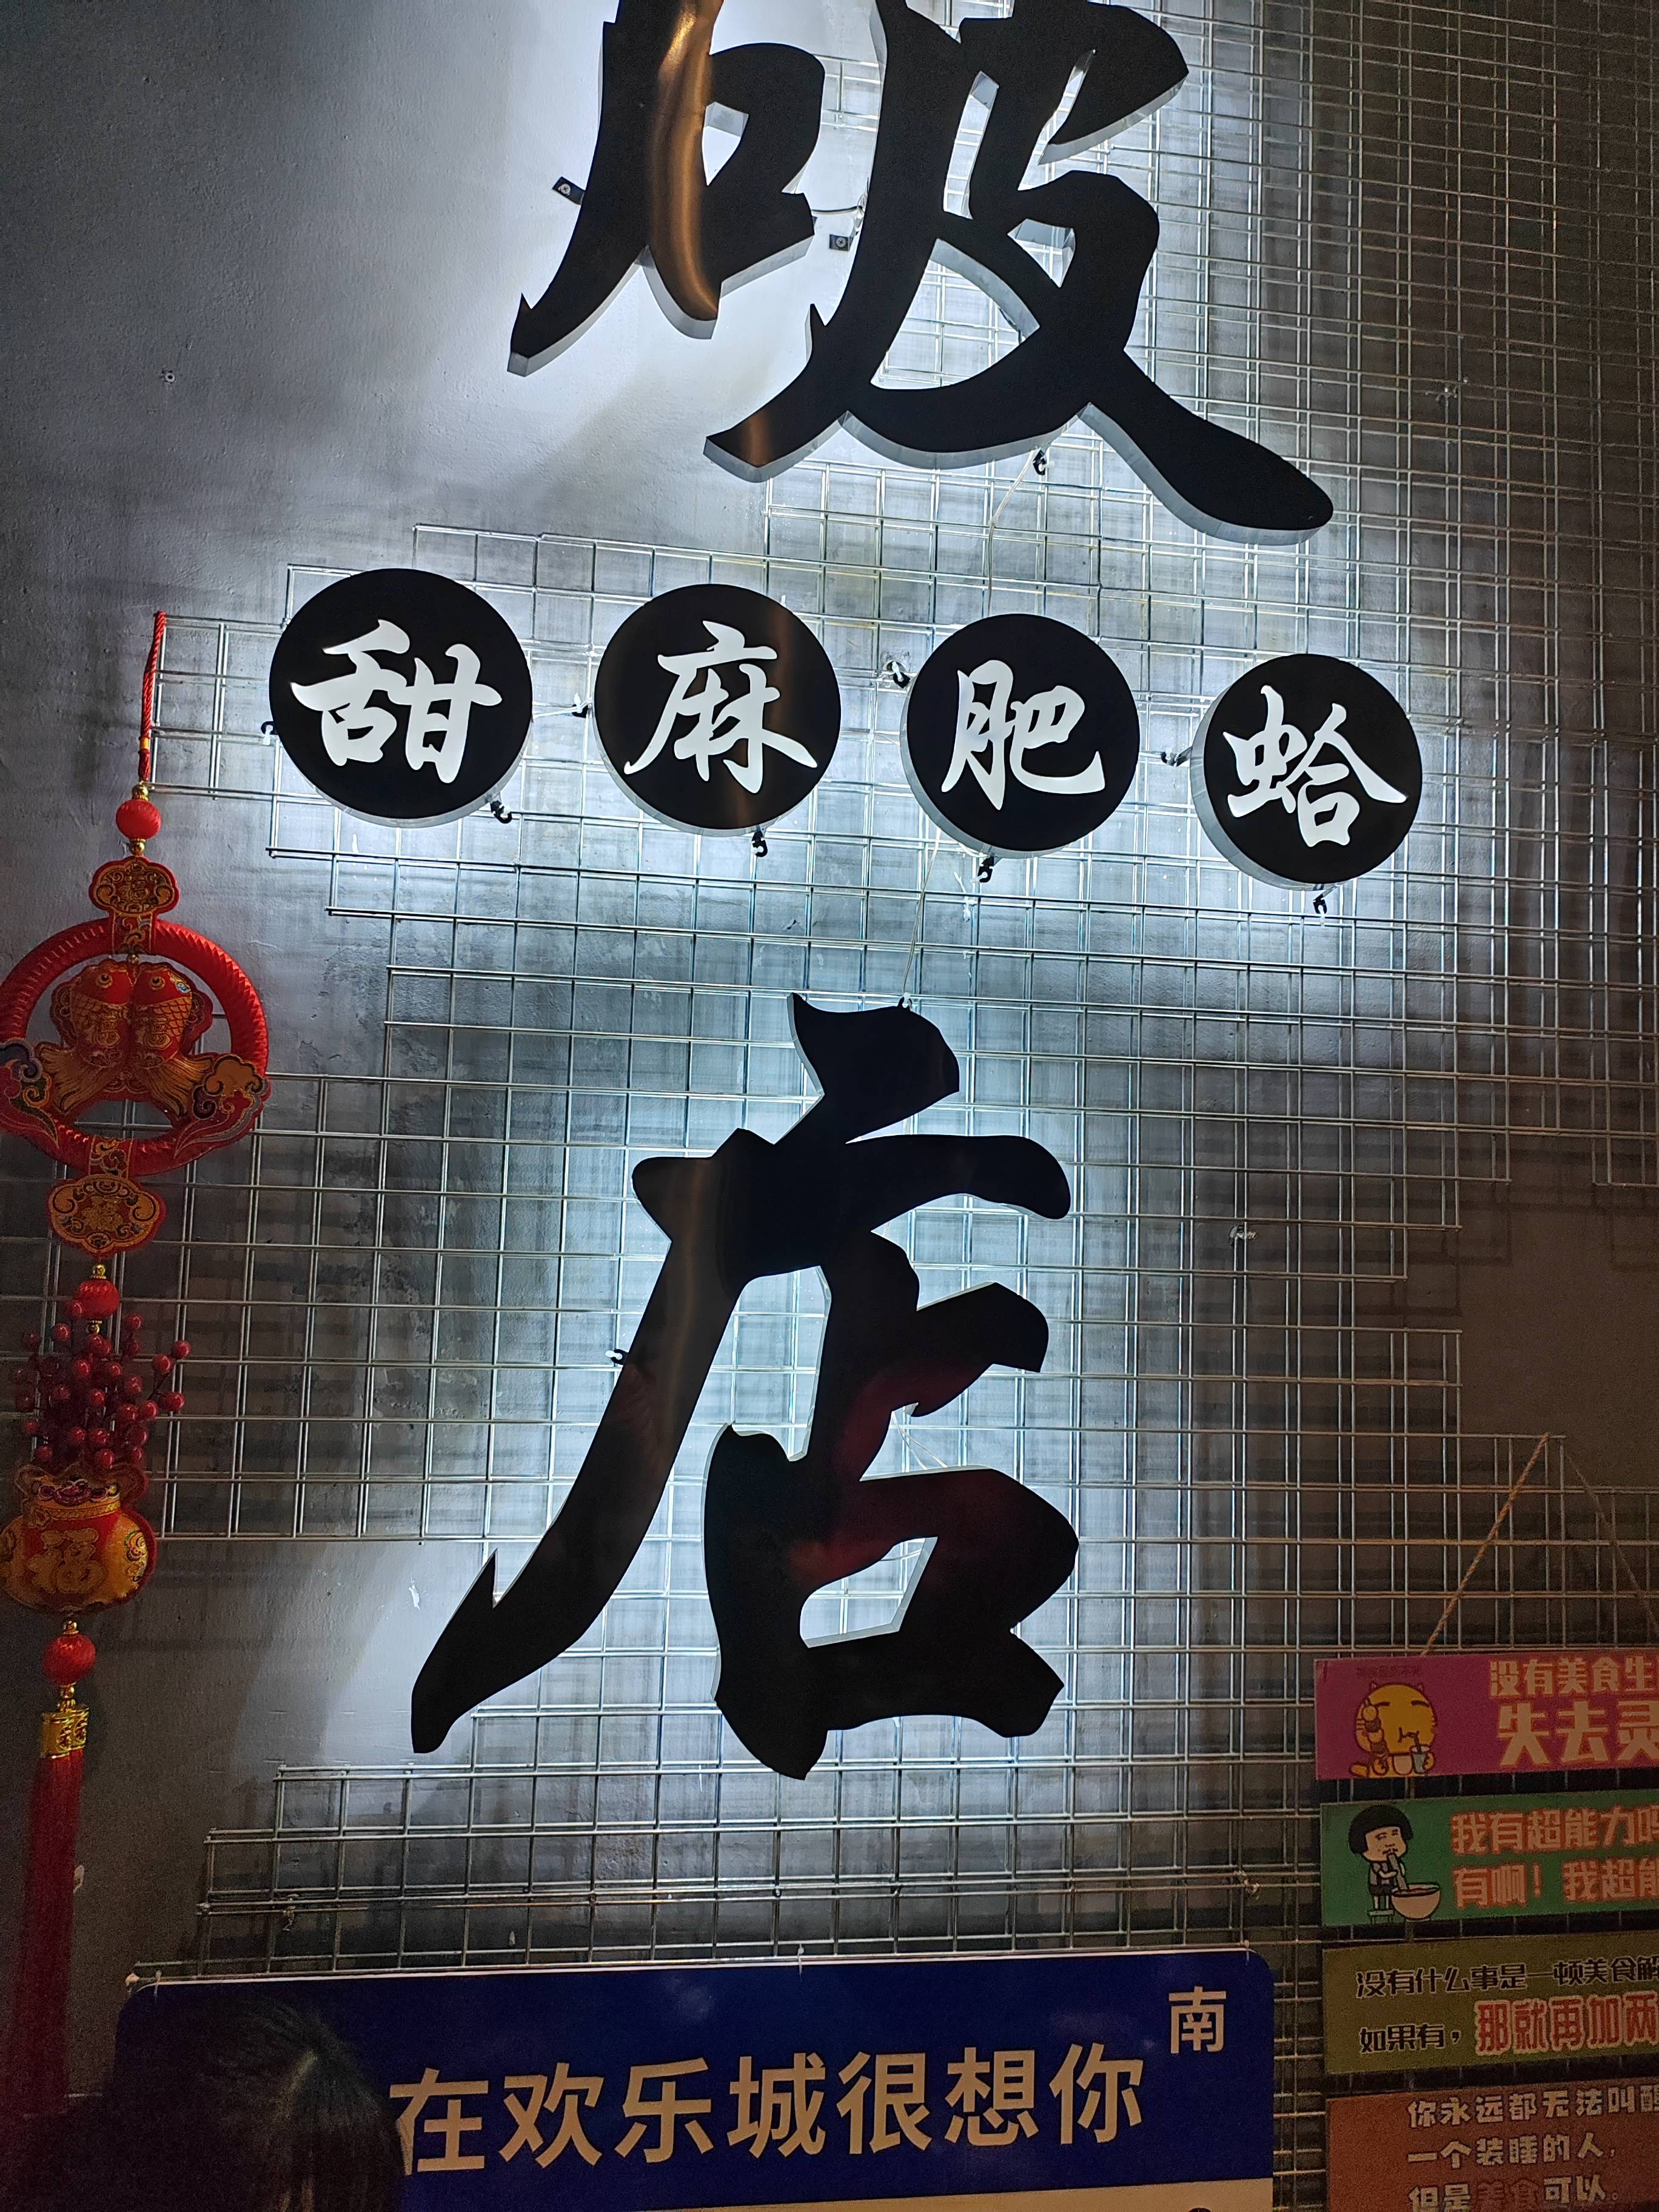 破
甜麻肥蛤
店
福
没有美食生
失去灵
我有超能力吗
有啊！我超能
没有什么事是一顿美食解
如果有，那就再加两
南
在欢乐城很想你
你永远都无法叫醒
一个装睡的人，
但是美食可以。